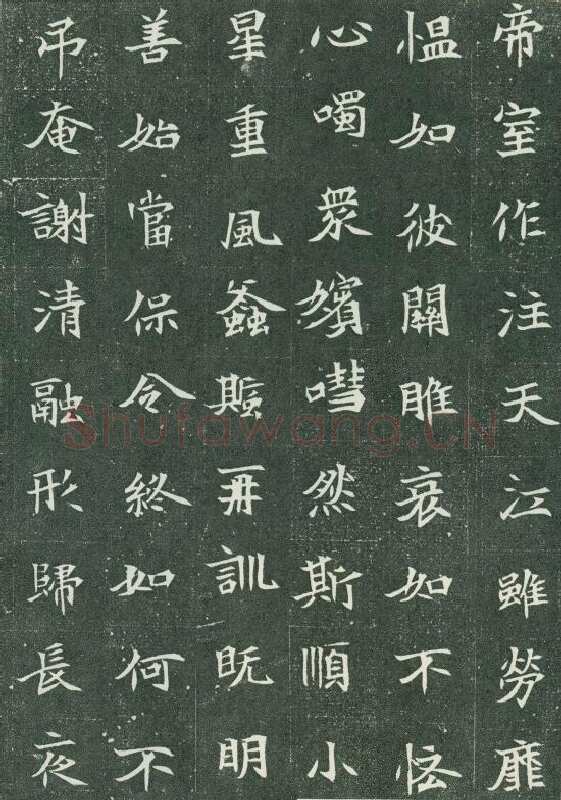 帝室作注天江雖勞靡
愠如彼關雎衰如不
心噣眾嬪嘒然斯順小
星重風螽再訓既明
善始當保令終如何不
吊奄謝清融形歸長夜
Shufawang.CN